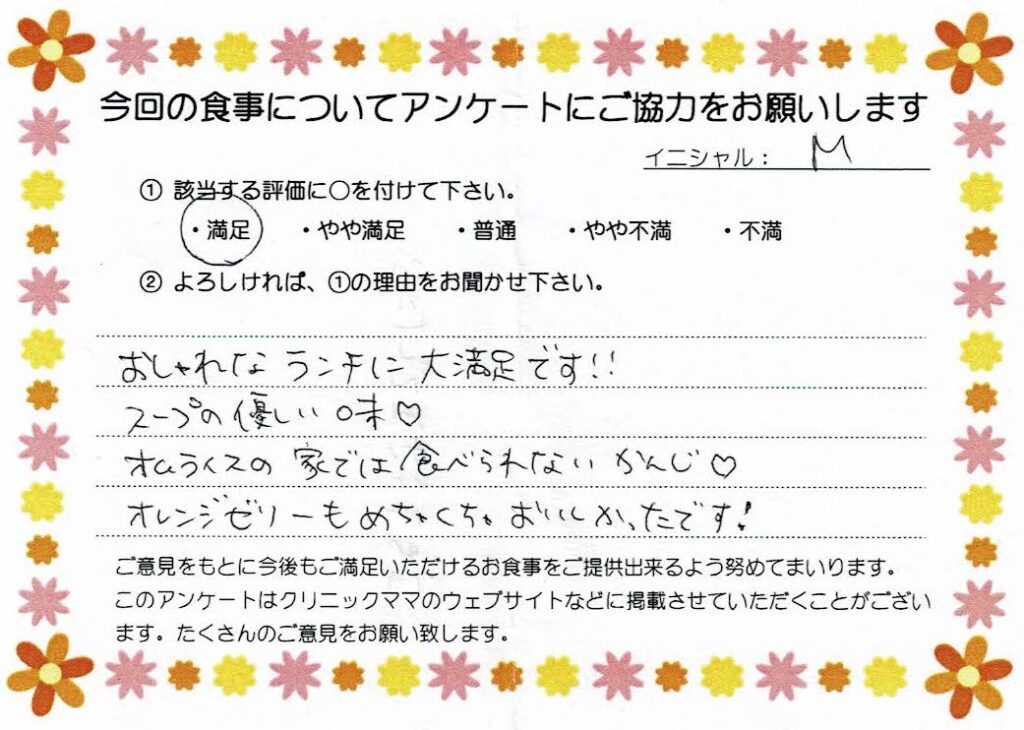 今回の食事についてアンケートにご協力をお願いします
イニシャル： M
① 該当する評価に○を付けて下さい。
・満足 ・やや満足 ・普通 ・やや不満 ・不満
② よろしければ、①の理由をお聞かせ下さい。
おしゃれな ランチに 大満足です!!
スープの優しい味♡
オムライスの 家では食べられない かんじ♡
オレンジゼリーもめちゃくちゃ おいしかったです!
ご意見をもとに今後もご満足いただけるお食事をご提供出来るよう努めてまいります。
このアンケートはクリニックママのウェブサイトなどに掲載させていただくことがござい
ます。たくさんのご意見をお願い致します。